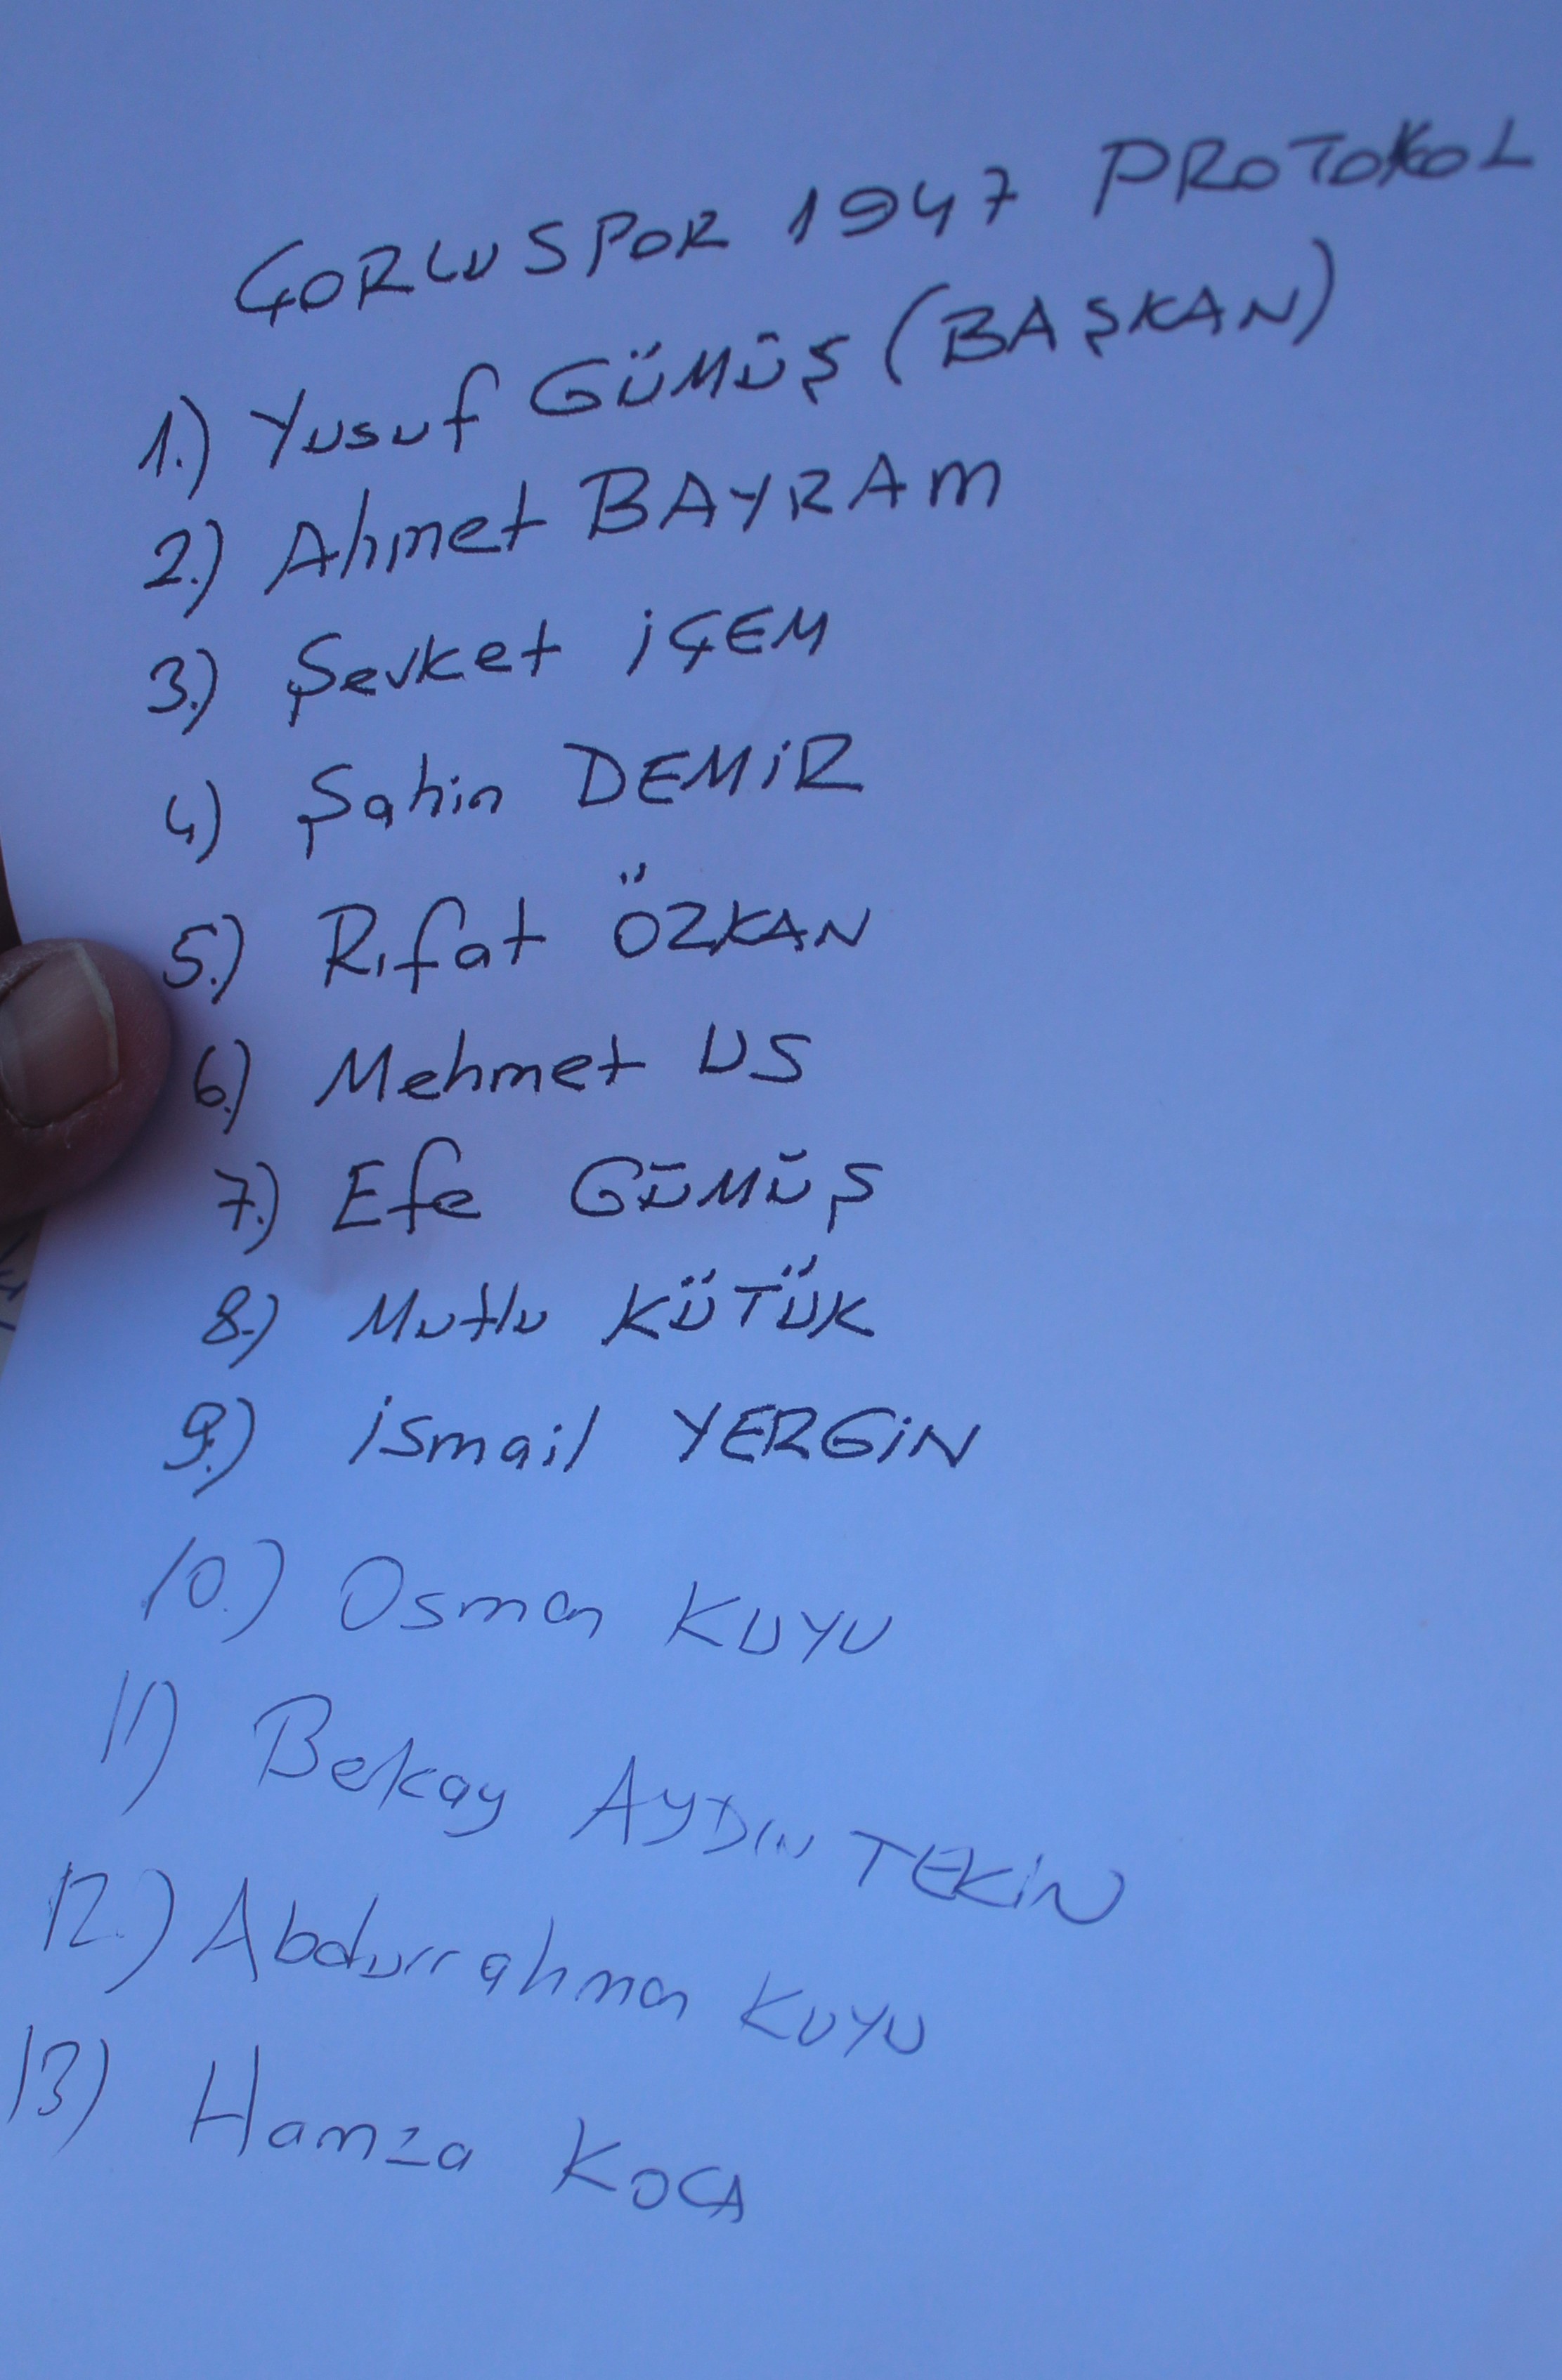 ÇORLUSPOR 1947 PROTOKOL
1.) Yusuf GÜMÜŞ (BAŞKAN)
2.) Ahmet BAYRAM
3.) Şevket İÇEM
4.) Şahin DEMİR
5.) Rıfat ÖZKAN
6.) Mehmet US
7.) Efe GÜMÜŞ
8.) Mutlu KÜTÜK
9.) İsmail YERGİN
10.) Osman KUYU
11) Bekay AYDIN TEKİN
12.) Abdurrahman KUYU
13) Hamza KOCA